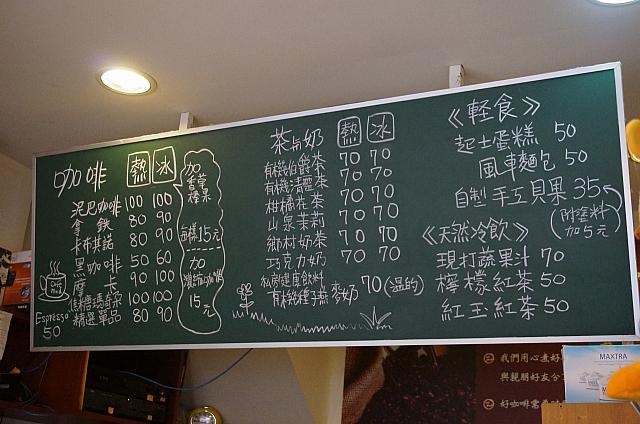 咖啡 熱 冰
泥巴咖啡 100 100
拿鐵 80 90
卡布其諾 80 90
黑咖啡 50 60
摩卡 90 100
焦糖瑪奇朵 100 100
精選單品 80 90
Espresso
50
加
香草
榛果
每樣15元
加
濃縮咖啡
15元
茶与奶 熱 冰
有機伯爵茶 70 70
有機清麵茶 70 70
柑橘花茶 70 70
山泉茉莉 70 70
鄉村奶茶 70 70
巧克力奶 70 70
私房健康飲料
有機種子燕麥奶 70 (溫的)
《輕食》
起士蛋糕 50
風車麵包 50
自製手工貝果 35
(附塗料
加5元)
《天然冷飲》
現打蔬果汁 70
檸檬紅茶 50
紅玉紅茶 50
我們用心煮好
與親朋好友分
好咖啡需要
MAXTRA